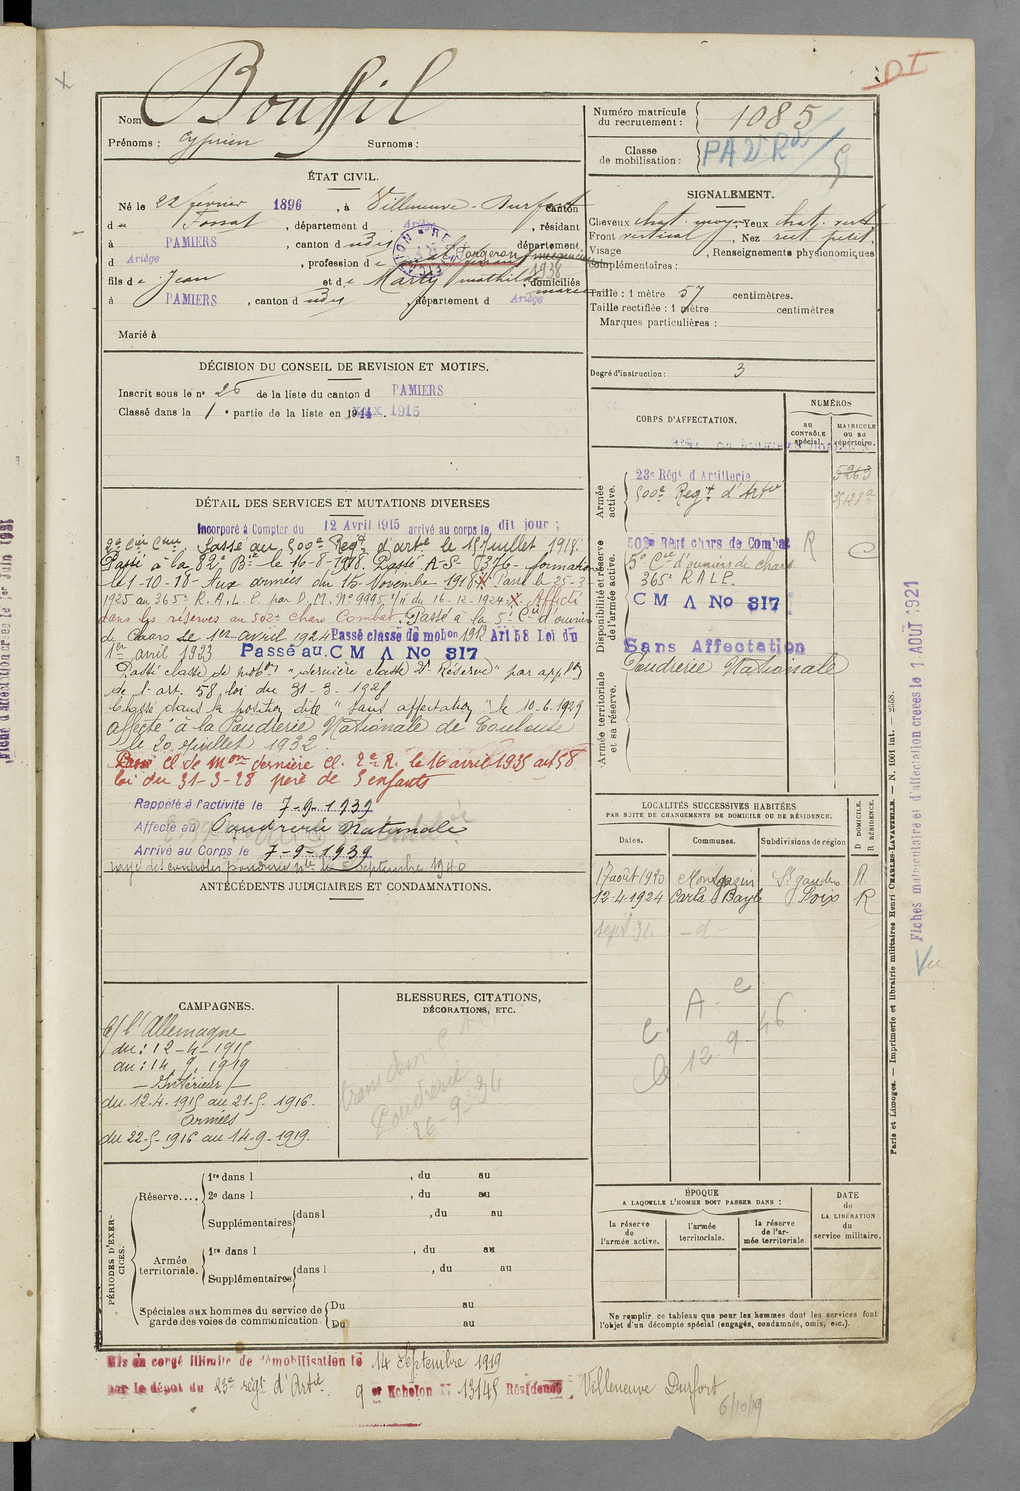 DI
Nom Bouffil
Prénoms : Cyprien Surnoms :
Numéro matricule
du recrutement : 1085
Classe
de mobilisation :
ÉTAT CIVIL.
Né le 22 février 1896, à Villeneuve-Durfort canton
du Fossat, département d Ariège, résidant
à PAMIERS, canton d département
d Ariège, profession de forgeron
fils de Jean et de Marty Mathilde, domiciliés
à PAMIERS, canton d , département d Ariège
Marié à
SIGNALEMENT.
Cheveux chat. moyen, Yeux chat. vert
Front vertical, Nez rect. petit
Visage , Renseignements physionomiques
complémentaires :
Taille : 1 mètre 57 centimètres.
Taille rectifiée : 1 mètre centimètres
Marques particulières :
Degré d'instruction : 3
DÉCISION DU CONSEIL DE REVISION ET MOTIFS.
Inscrit sous le nº 26 de la liste du canton d PAMIERS
Classé dans la 1e partie de la liste en 1915.
CORPS D'AFFECTATION.
NUMÉROS
AU CONTRÔLE spécial.
MATRICULE OU AU répertoire.
Armée active.
23e Régt d'Artillerie 5263
500e Regt d'Artie
Disponibilité et réserve de l'armée active.
502e Régt chars de Combat R
5e Cie d'ouviers de chars
365 RALP.
C M A No 317
Armée territoriale et sa réserve.
Sans Affectation
Poudrerie Nationale
DÉTAIL DES SERVICES ET MUTATIONS DIVERSES
Incorporé à Compter du 12 Avril 1915 arrivé au corps le dit jour ;
2e Cnr Cnr. Passé au 500e Regt d'artie le 15 juillet 1918.
Passé à la 82e Bie le 16-8-1918. Passé A.S. 376 - formation
le 1-10-18 - Aux armées du 15 Novembre 1918 X Passé le 25-3-
1925 au 365e R.A.L.P. par D.M. Nº 9995 1/11 du 16-12-1924 X. Affecté
dans les réserves au 502e chars Combat. Passé à la 5e Cie d'ouvriers
de Chars le 1er avril 1924 Passé classe de mobon 1912 Art 58 Loi du
1er avril 1923 Passé au C M A No 317
Passé classe de mobon "dernière classe 2e Réserve" par applon
de l'art. 58, loi du 31-3-1928
Classé dans la position dite "sans affectation" le 10-6-1929
Affecté à la Poudrerie Nationale de Toulouse
le 20 Juillet 1932.
Passé cl de mon dernière cl. 2e R. le 16 avril 1935 art 58
loi du 31-3-28 père de 5 enfants
Rappelé à l'activité le 7-9-1939
Affecté au Poudrerie Nationale
Arrivé au Corps le 7-9-1939
rayé des contrôles poudrerie nle le 5 Septembre 1940
ANTÉCÉDENTS JUDICIAIRES ET CONDAMNATIONS.
LOCALITÉS SUCCESSIVES HABITÉES
PAR SUITE DE CHANGEMENTS DE DOMICILE OU DE RÉSIDENCE.
Dates. Communes. Subdivisions de région D DOMICILE. R RÉSIDENCE.
17 août 1920 Montgazin St gaudens R
12-4-1924 Carla Bayle Foix R
sept 31 -d-
A. e
C. le 12 9 46
CAMPAGNES.
C/ l'Allemagne
du : 12-4-1915
au : 14.9.1919
— Intérieur —
du 12.4.1915 au 21-5-1916.
Armées
du 22-5-1916 au 14-9-1919.
BLESSURES, CITATIONS,
DÉCORATIONS, ETC.
Poudrerie
26-9-34
PÉRIODES D'EXERCICES.
Réserve....
1re dans l , du au
2e dans l , du au
Supplémentaires dans l , du au
Armée territoriale.
1re dans l , du au
Supplémentaires dans l , du au
Spéciales aux hommes du service de
garde des voies de communication.
Du au
Du au
ÉPOQUE
A LAQUELLE L'HOMME DOIT PASSER DANS :
la réserve de l'armée active.
l'armée territoriale.
la réserve de l'armée territoriale
DATE de LA LIBÉRATION du service militaire.
Ne remplir ce tableau que pour les hommes dont les services font
l'objet d'un décompte spécial (engagés, condamnés, omis, etc.).
Mis en congé illimité de démobilisation le 14 Septembre 1919
par le dépôt du 23e regt d'Artie 9 er Echelon Nº 13145 Résidence Villeneuve Durfort
6/10/19
Paris et Limoges. — Imprimerie et librairie militaires Henri CHARLES-LAVAUZELLE. — N. 1001 int. — 2558.
Fiches matriculaire et d'affectation créées le 1 AOUT 1921
Vu
Fiche d'affectation créée le 1er Juin 1931